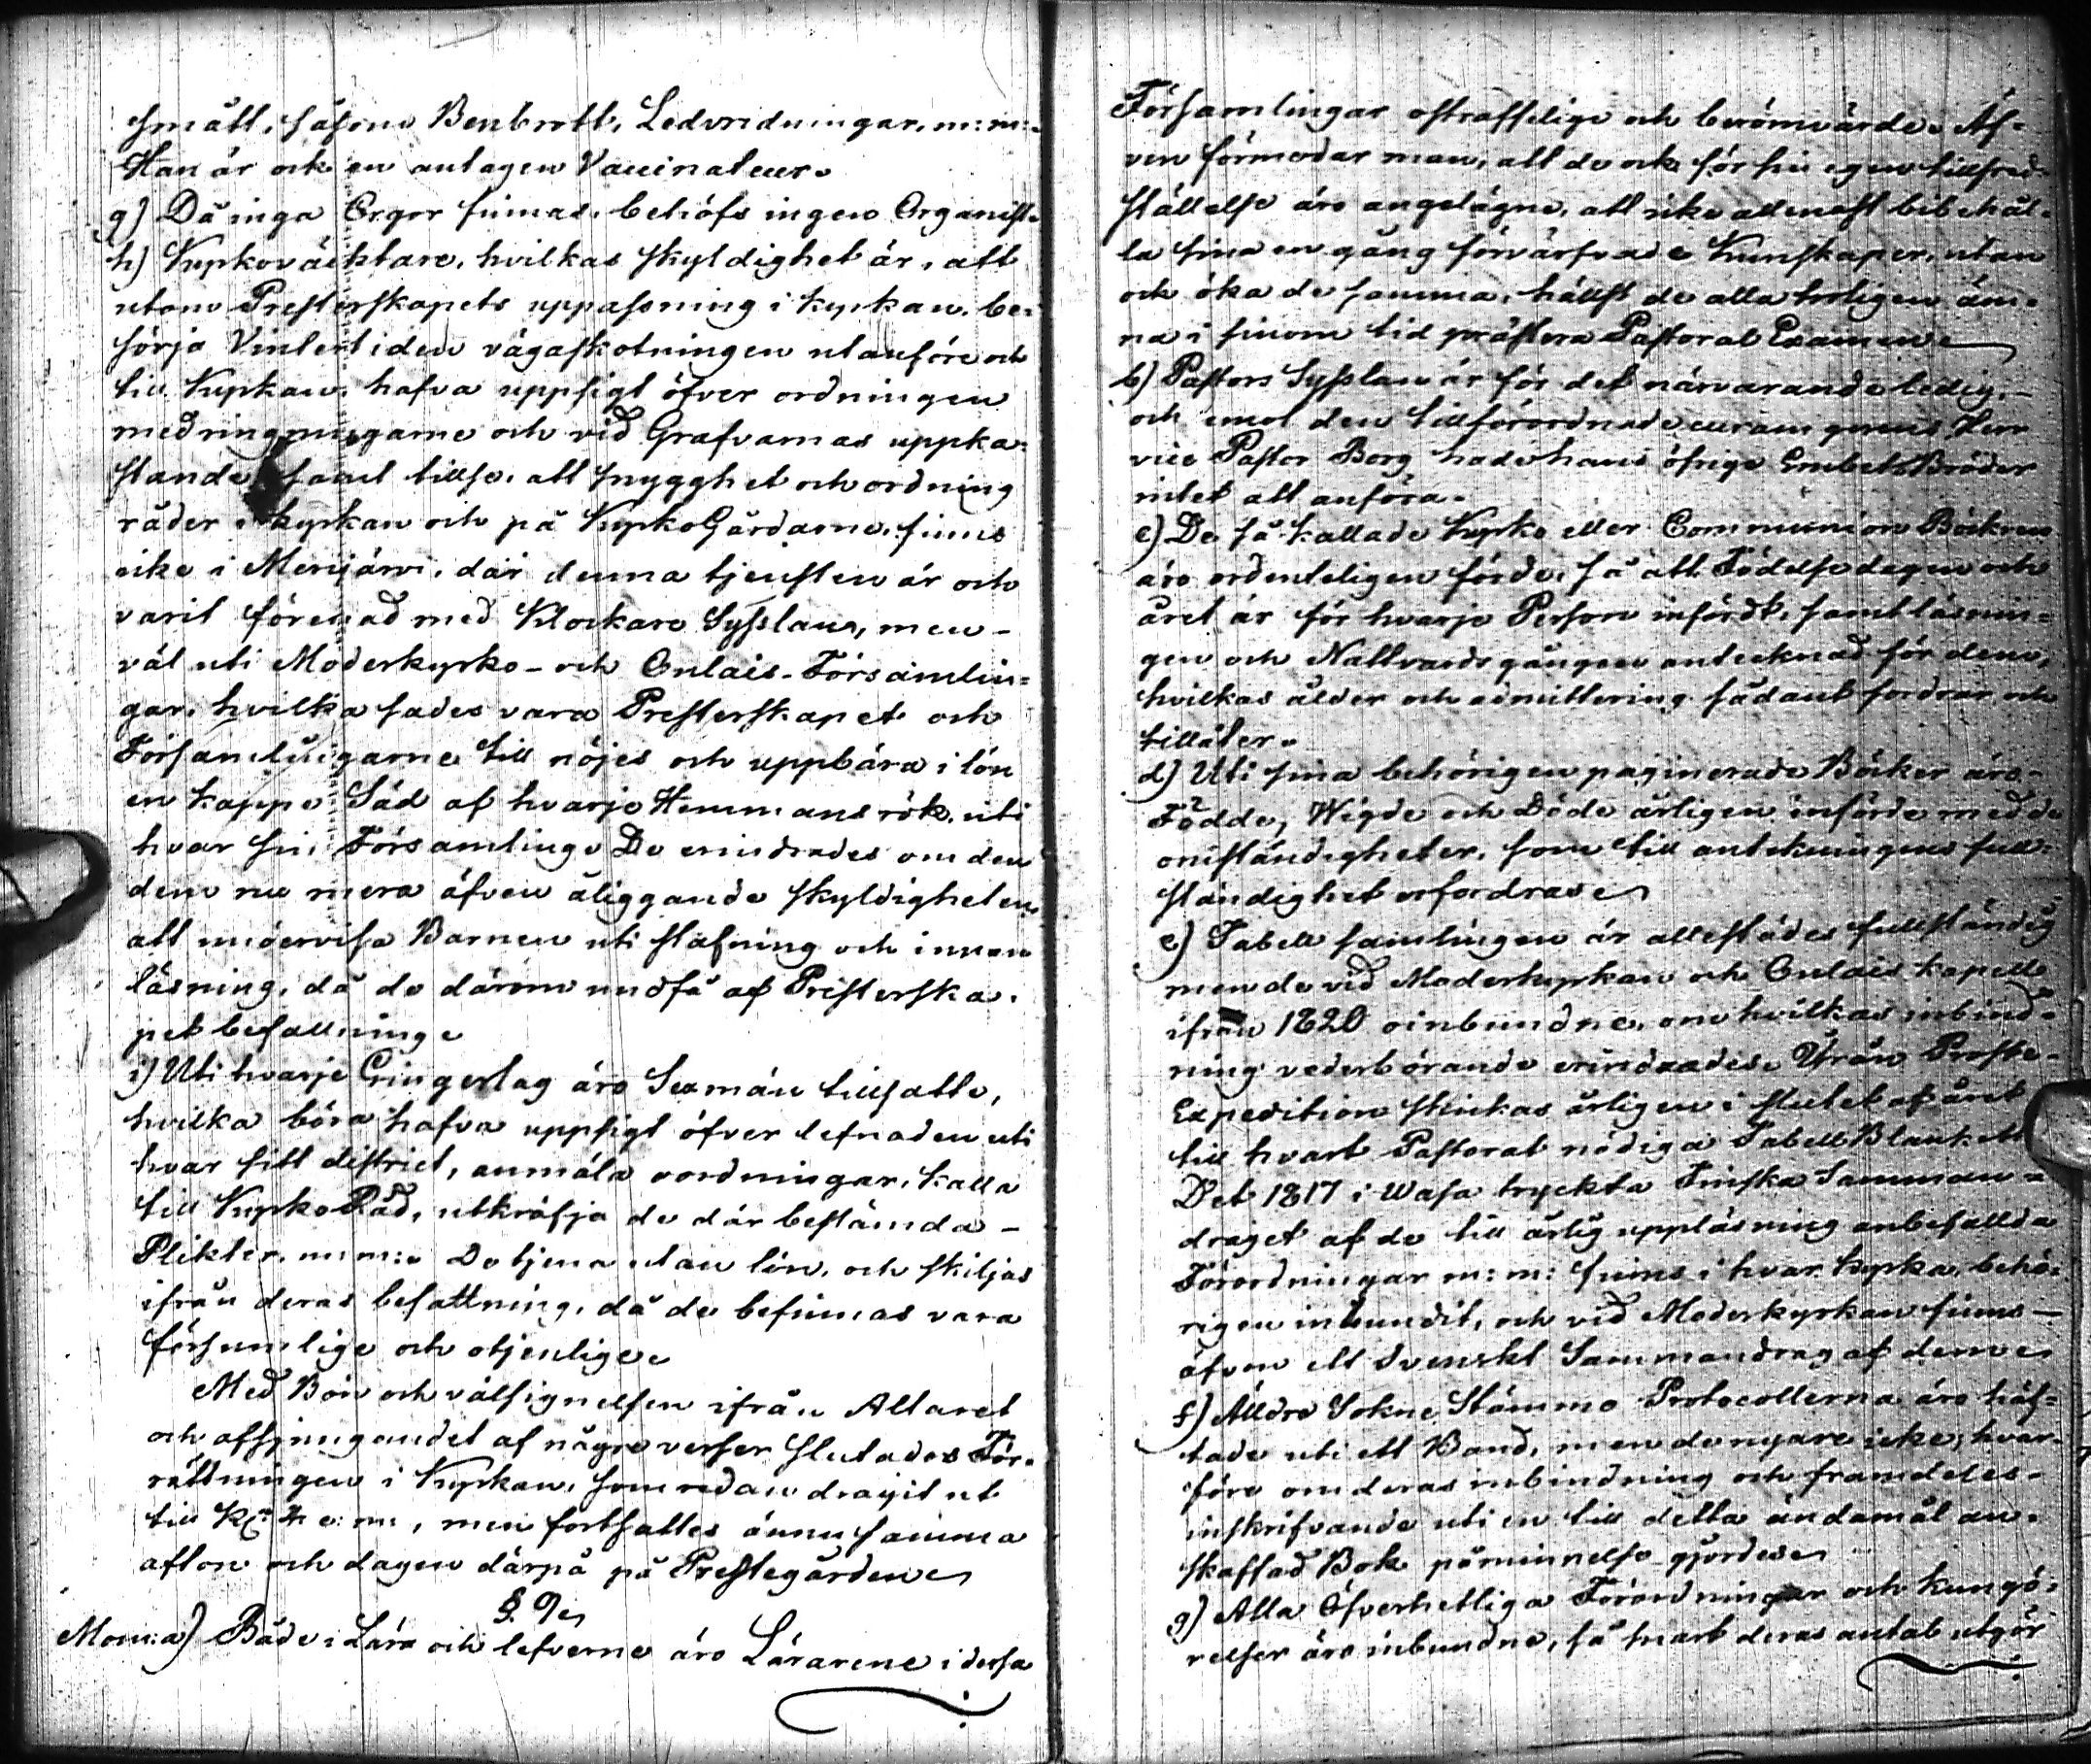 smått, såsom Benbrott, Ledvridningar, m: m:
Han är ock en antagen Vaccinateur.
g) Då inga Orgor finnas, behöfs ingen Organist.
h) Kyrkoväcktare, hvilkas skyldighet är, att
utom Presterskapets uppassning i kyrkan, be-
sörja Vintertiden vägaskotningen utanföre och
till Kyrkan, hafva uppsigt öfver ordningen
med ringningarne och vid Grafvarnas uppka-
stande samt tillse, att snygghet och ordning
råder i kyrkan och på KyrkoGårdarne, finnes
icke i Merijärvi, där denna tjensten är och
varit förenad med Klockare Sysslan, men -
väl uti Moderkyrko- och Oulais-Församlin=
gar, hvilka sades vara Presterskapet och
Församlingarne till nöjes och uppbära i lön
en kappe Säd af hvarje Hemmans rök, uti
hvar sin Församling. De erindrades om den
dem nu mera äfven åliggande skyldigheten,
att undervisa Barnen uti stafning och innan
läsning, då de därom undfå af Presterska-
pet befallning.
i) Uti hvarje Gringeslag äro Sexmän tillsatte,
hvilka böra hafva uppsigt öfver lefnaden uti
hvar sitt district, anmäla oordningar, kalla
till KyrkoRåd, utkräfja de där bestämda -
Plikter, m: m:. De tjena utan lön, och skiljas
ifrån deras befattning, då de befinnas vara
försumlige och otjenlige.
Med Bön och välsignelsen ifrån Altaret
och afsjungandet af några verser slutades För-
rättningen i Kyrkan, som redan dragit ut
till Kl. e: m:, men fortsattes ännu samma
afton och dagen därpå på Prestegården.
§. 9.
Mom: a) Både i Lära och lefverne äro Lärarene i dessa
Församlingar ostraffelige och berömvärde. Äf-
ven förmodar man, att de ock för sin egen tillfreds-
ställelse äro angelägne, att icke allenast bibehål-
la sina en gång förvärfvade Kunskaper, utan
ock öka de samma, hällst de alla troligen äm-
na i sinom tid præstera Pastoral Examen.
b) Pastors Sysslan är för det närvarande ledig, -
och emot den tillförordnade curam gerens Herr
vice Pastor Borg hade hans öfrige Embets Bröder
intet att anföra.
c) De så kallade Kyrko eller Communion Böckren
äro ordenteligen förde, så att Födelsedagen och
året är för hvarje Person infördt, samt läsnin=
gen och Nattvards gången antecknad för dem,
hvilkas ålder och admittering sådant fordrar och
tillåter.
d) Uti sina behörigen paginerade Böcker äro -
Födde, Wigde och Döde årligen införde med de
omständigheter, som till antekningens full-
ständighet erfordras.
e) Tabell samlingen är allestädes fullständig
men de vid Moderkyrkan och Oulais kapell
ifrån 1820 oinbundne, om hvilkas inbind-
ning vederbörande erindrades. Ifrån Proste-
Expedition skickas årligen i slutet af året
till hvart Pastorat nödiga Tabell Blanketter
Det 1817 i Wasa tryckta Finska Samman-
draget af de till årlig uppläsning anbefallda
Förordningar m: m: finns i hvar kyrka, behö-
rigen inbundit, och vid Moderkyrkan finns -
äfven ett Svenskt Sammandrag af dem.
f) Äldre Sokne Stämmo Protocollerna äro häf=
tade uti ett Band, men de nyare icke, hvar-
före om deras inbindning och framdeles -
inskrifvande uti en till detta ändamål an-
skaffad Bok påminnelse gjordes.
g) Alla Öfverhetliga Förordningar och kungö-
relser äro inbundne, så snart deras antal utgör